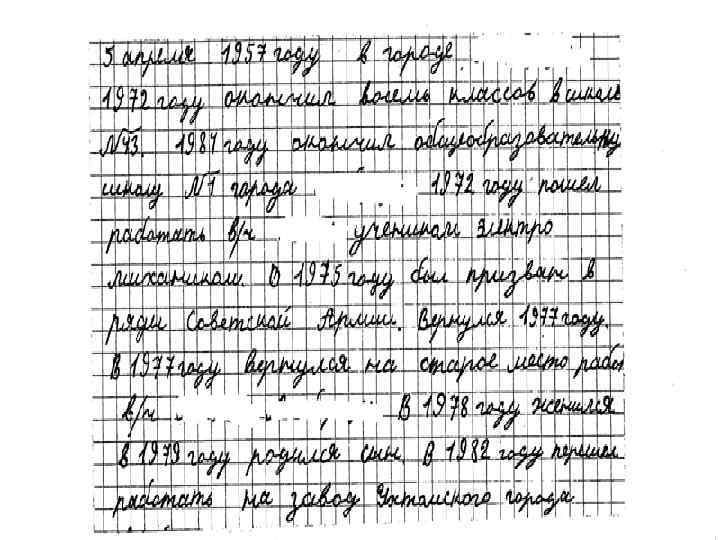 5 апреля 1957 году в городе
1972 году окончил восемь классов в школе
№43. 1981 году окончил общеобразовательную
школу №1 города 1972 году пошел
работать в/ч учеником электро
механиком. В 1975 году был призван в
ряды Советской Армии. Вернулся 1977 году.
В 1977 году вернулся на старое место работ
в/ч В 1978 году женился
в 1979 году родился сын. В 1982 году перешел
работать на завод Ухтомского города